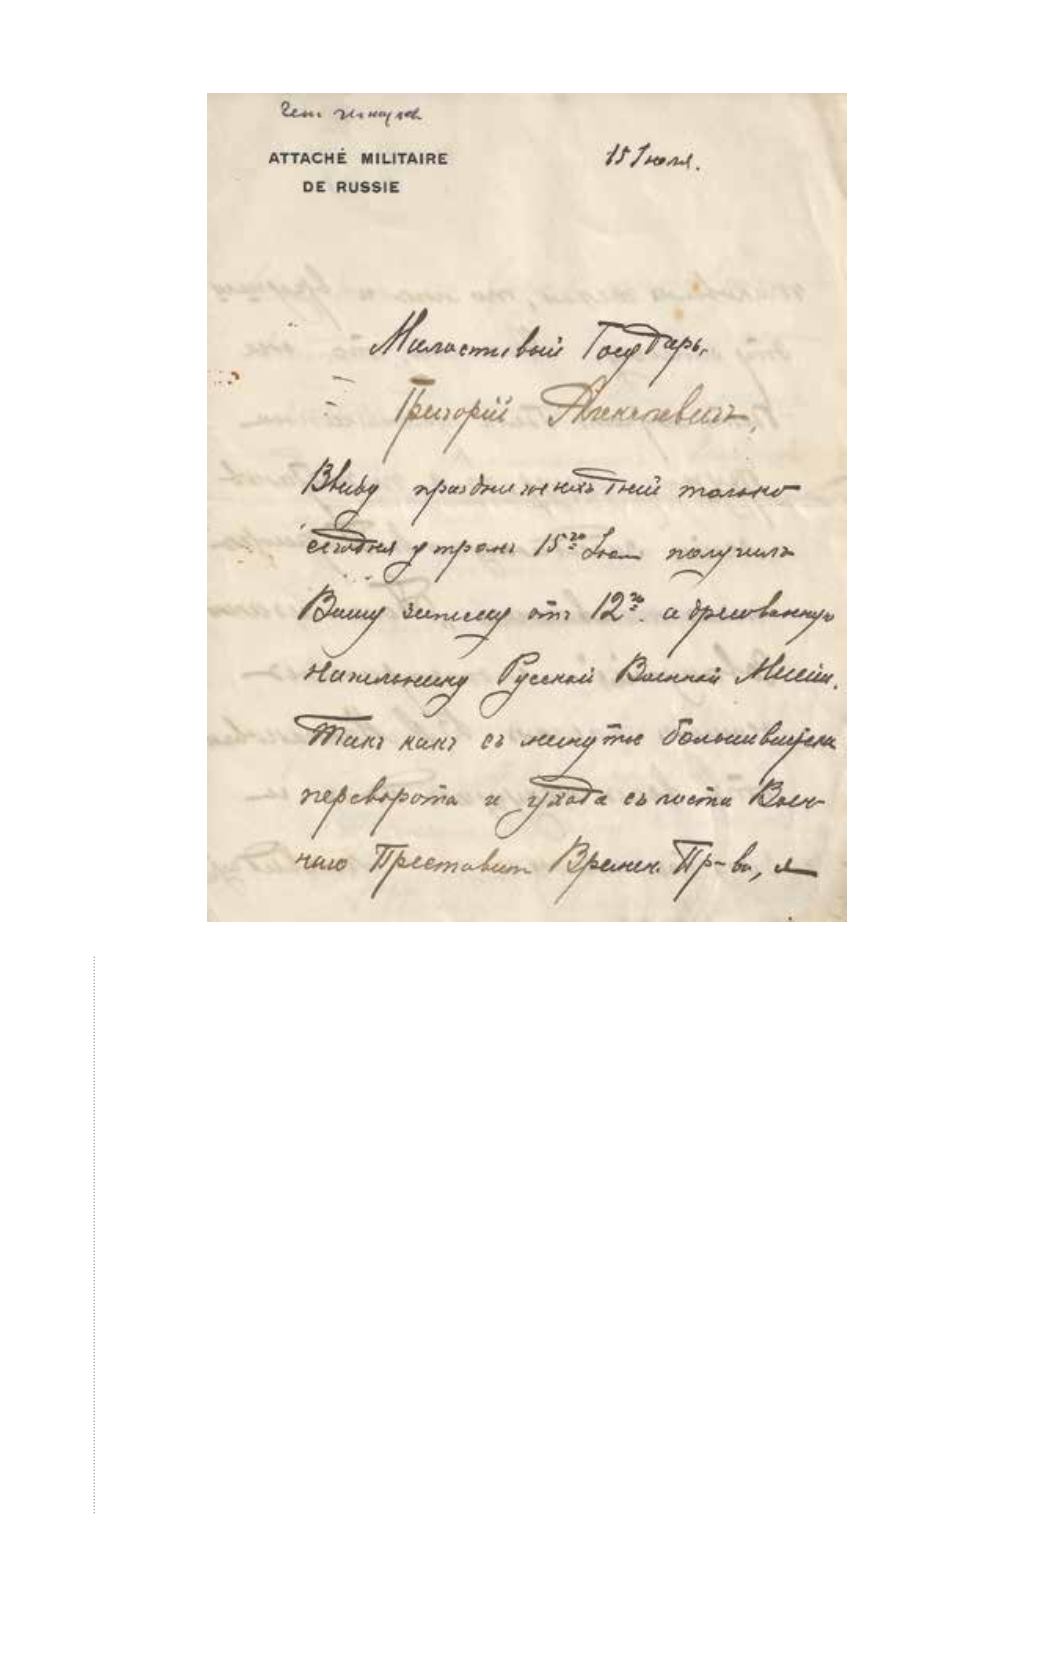 ATTACHÉ MILITAIRE
DE RUSSIE
15 Іюля.
Милостивый Государь,
Григорій Алексѣевичъ,
Ввиду праздничныхъ дней только
сегодня утромъ 15го Іюля получилъ
Вашу записку отъ 12го. адресованную
Начальнику Русской Военной Миссіи.
Такъ какъ съ минуты большевицкаго
переворота и ухода съ поста Воен-
наго Представит. Времен. Пр-ва, я